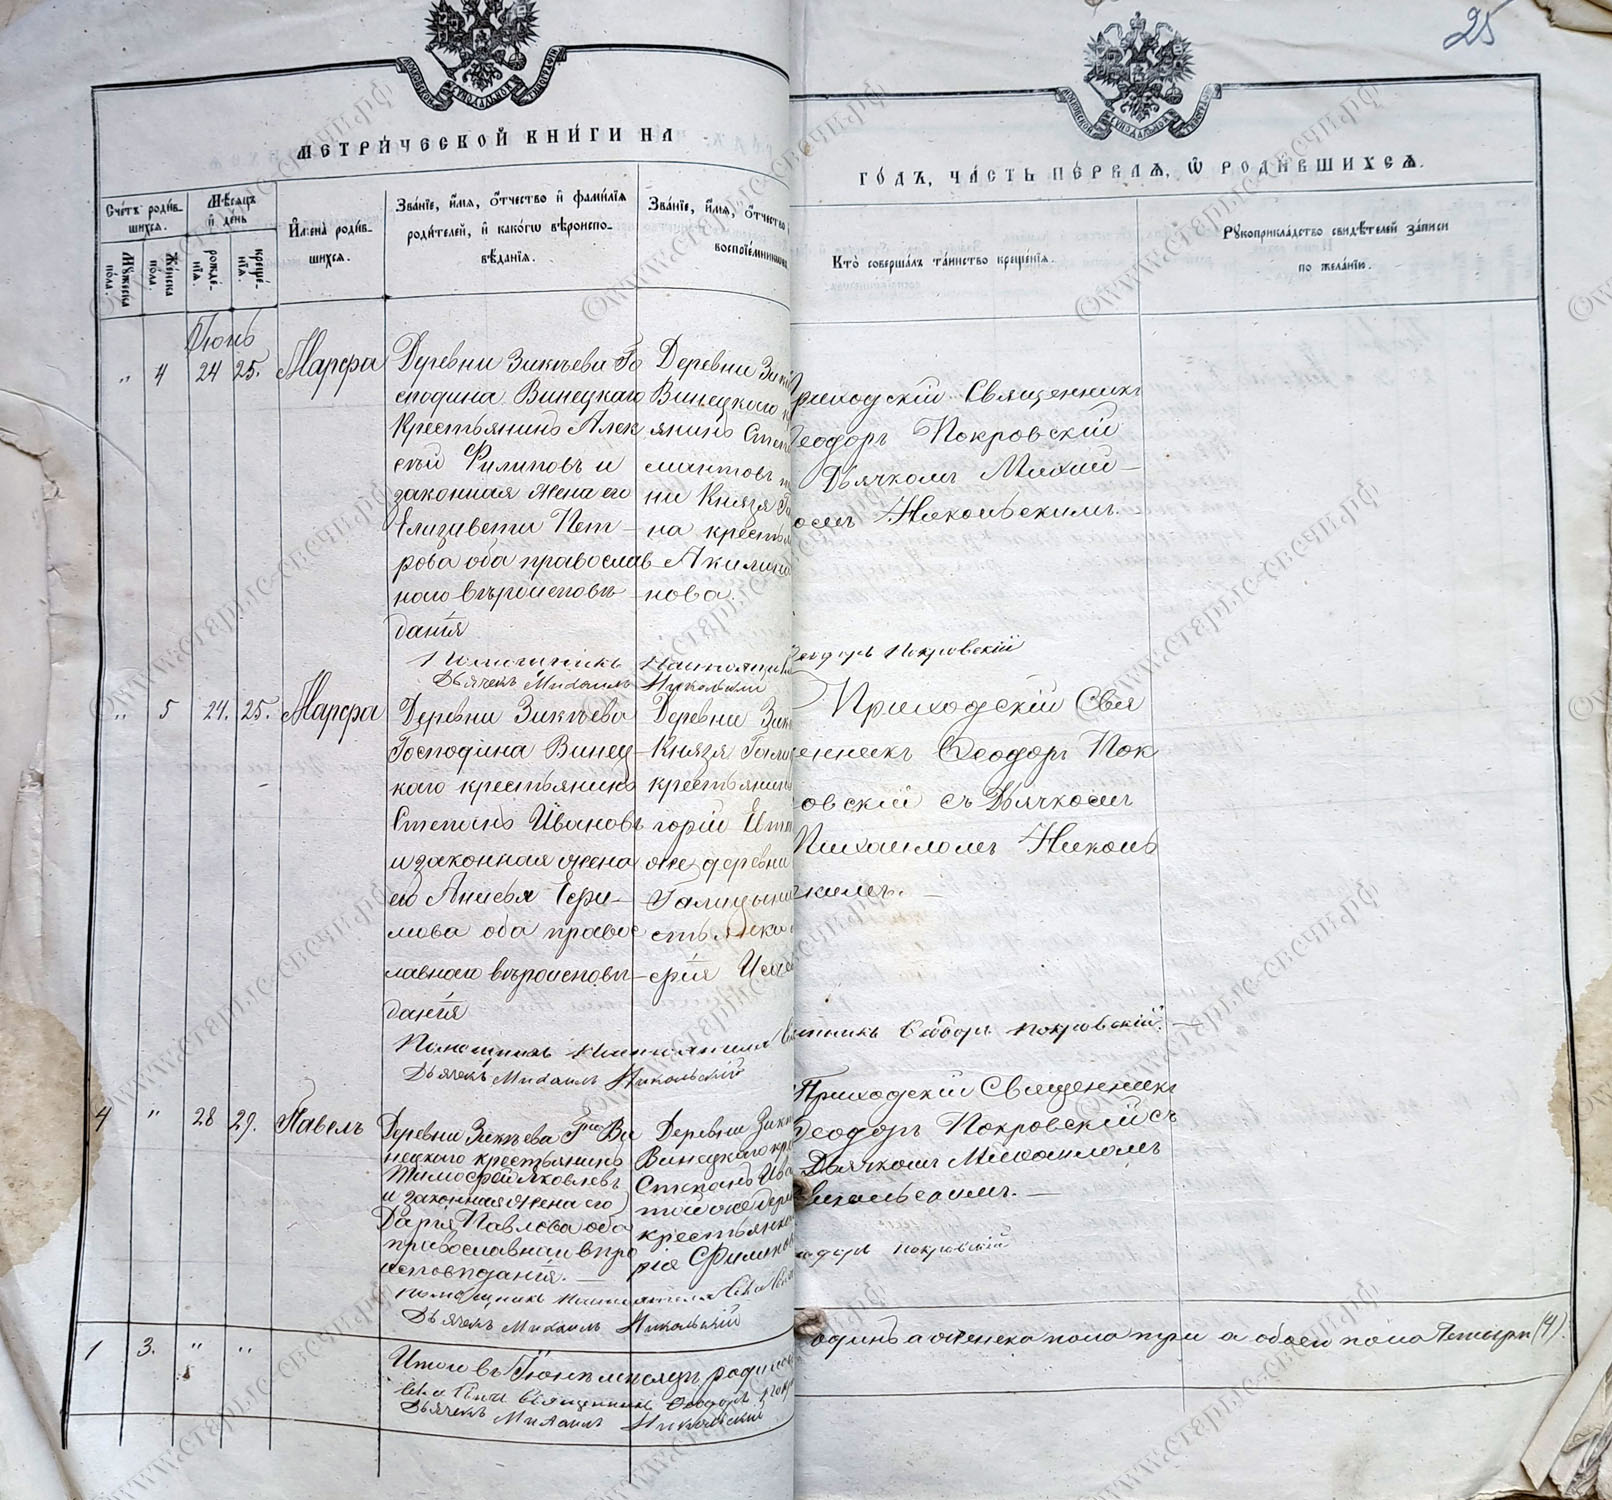 25
МЕТРИ́ЧЕСКОЙ КНИ́ГИ НА
ГО́ДЪ, ЧА́СТЬ ПЕ́РВАЯ, Ѡ РОДИ́ВШИХСЯ.
Сче́тъ роди́в-
шихся.
Му́жеска пола
Же́нска пола.
Мѣ́сяцъ
и҆ де́нь
рожде́-
нїя.
креще́-
нїя.
И҆мена̀ роди́в-
шихся.
Зва́нїе, и҆́мя, ѻ҆́тчество и҆ фами́лїя
роди́телей, и҆ како́гѡ вѣроиспо-
вѣ́данїя.
Зва́нїе, и҆́мя, ѻ҆́тчество
воспрїе́мниковъ
Кто̀ соверша́лъ та́инство креще́нїя.
Рꙋкоприкла́дство свидѣ́телей за́писи
по жела́нїю.
Іюнь
" 4 24 25. Марфа
Деревни Зикѣева Го
сподина Винецкаго
Крестьянинъ Алек
сѣй Филиповъ и
законная жена его
Елизавета Пет-
рова оба православ
наго вѣроисповѣ-
данія
Деревни Зикѣ
Винецкаго
янинъ
ни Князя
на кресть
Акилин
нова.
Приходскій Священникъ
Ѳеодоръ Покровскій
Дьячкомъ Михаи-
ломъ Никольскимъ.
Помощникъ Настоятеля
Ѳеодоръ Покровскій
Дьячекъ Михаилъ Никольскій
" 5 24. 25. Марфа
Деревни Зикѣева
Господина Винец-
каго крестьянинъ
Степанъ Ивановъ
и законная жена
его Анисья Ефи-
мова оба правос
лавнаго вѣроисповѣ-
данія
Деревни Зик
Князя Гали
крестьянин
горій
же деревни
Галицына
стьянка
ерія
Приходскій Свя
щенникъ Ѳеодоръ Пок
ровскій съ Дьячкомъ
Михаиломъ Николь
скимъ. —
Помощникъ Настоятеля
Ѳеодоръ Покровскій. —
Дьячекъ Михаилъ Никольскій
4 " 28 29. Павелъ
Деревни Зикѣева Гна Ви
нецкаго крестьянинъ
Тимофей Яковлевъ
и законная жена его
Дарія Павлова оба
православнаго вѣро
исповѣданія. —
Деревни Зикѣ
Винецкаго кр
Степанъ Ива
той же дерев
крестьянка
рія Филипо
Приходскій Священникъ
Ѳеодоръ Покровскій съ
Дьячкомъ Михаиломъ
Никольскимъ. —
Помощникъ Настоятеля
Ѳеодоръ Покровскій
Дьячекъ Михаилъ Никольскій
1 3. " "
Итого въ Іюнѣ мѣсяцѣ родилось
одинъ а женска пола три а обоего пола Четыри (4).
Священникъ Ѳеодоръ Покр
Дьячекъ Михаилъ Никольскій
©www.старыс-свсчи.рф